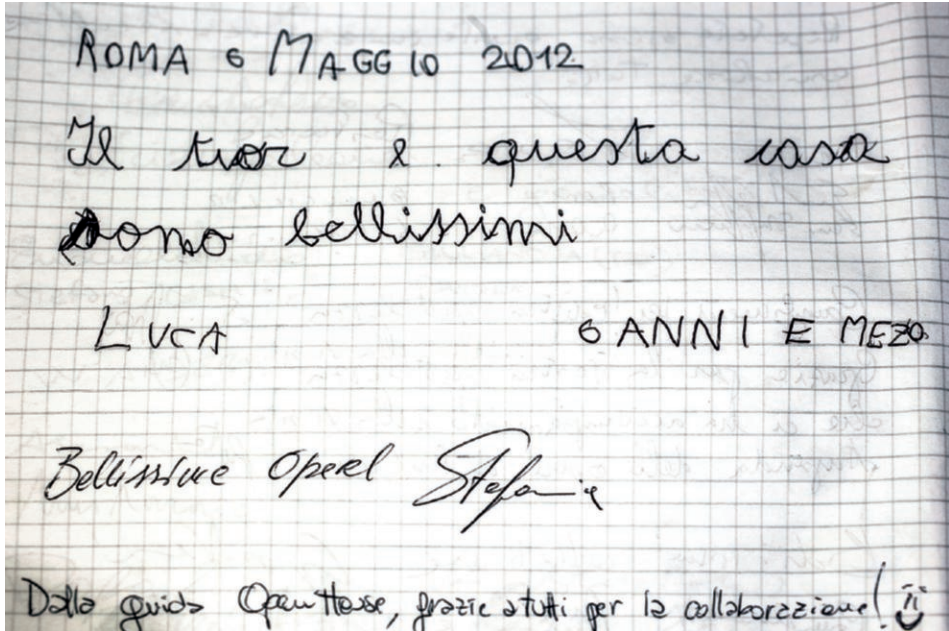 ROMA 6 MAGGIO 2012
Il tuor e questa casa
sono bellissimi
LUCA 6 ANNI E MEZO
Bellissime Opere! Stefania
Dalla guida Open House, grazie a tutti per la collaborazione!